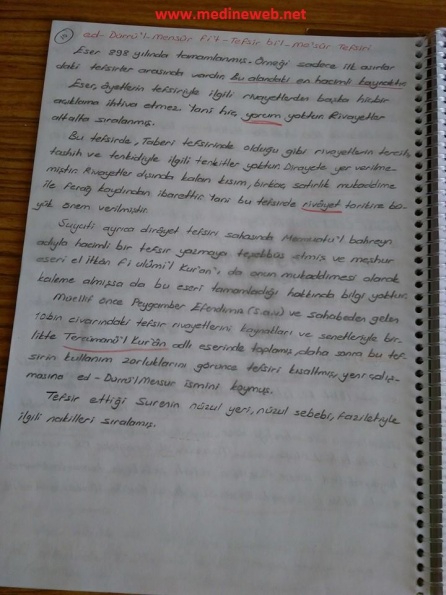 www.medineweb.net
ed-Dürrü'l-Mensûr fi't-Tefsir bi'l-me'sûr Tefsiri
Eser 898 yılında tamamlanmış. Örneği sadece ilk asırlar
daki tefsirler arasında vardır. Bu alandaki en hacimli kaynaktır.
Eser, âyetlerin tefsiriyle ilgili rivayetlerden başka hiçbir
açıklama ihtiva etmez. Yani hiç yorum yoktur. Rivayetler
alt alta sıralanmış.
Bu tefsirde, Taberi tefsirinde olduğu gibi rivayetlerin tercih,
tashih ve tenkidiyle ilgili tenkitler yoktur. Dirayete yer verilme-
miştir. Rivayetler dışında kalan kısım, birkaç satırlık mukaddime
ile ferağ kaydından ibarettir. Yani bu tefsirde rivâyet tarikine bü-
yük önem verilmiştir.
Suyuti ayrıca dirâyet tefsiri sahasında Mecmau'l bahreyn
adıyla hacimli bir tefsir yazmaya teşebbüs etmiş ve meşhur
eseri el İtkân fi ulûmi'l Kur'an'ı da onun mukaddimesi olarak
kaleme almışsa da bu eseri tamamladığı hakkında bilgi yoktur.
Müellif önce Peygamber Efendimiz (s.a.v) ve sahabeden gelen
10bin civarındaki tefsir rivayetlerini kaynakları ve senetleriyle bir-
likte Tercümanü'l Kur'ân adlı eserinde toplamış, daha sonra bu tef-
sirin kullanım zorluklarını görünce tefsiri kısaltmış, yeni çalış-
masına ed-Dürrü'l Mensur ismini koymuş.
Tefsir ettiği surenin nüzul yeri, nüzul sebebi, faziletiyle
ilgili nakilleri sıralamış.